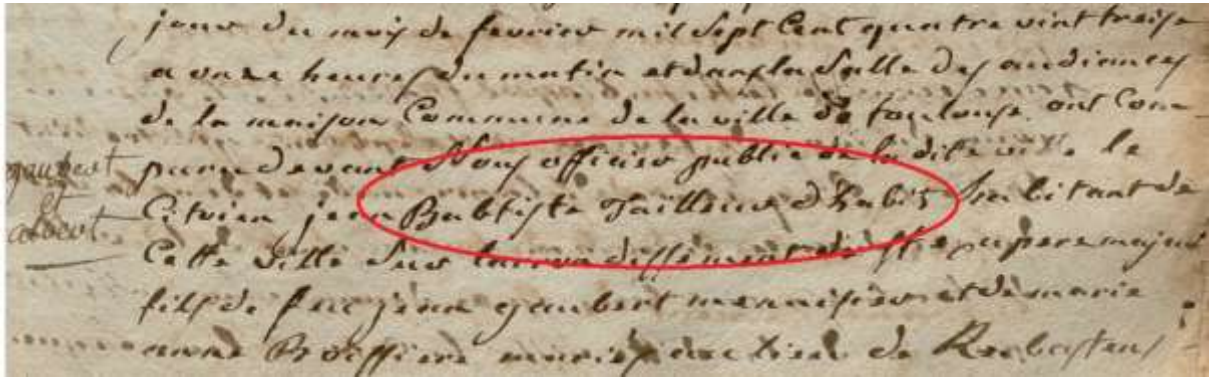 jour du mois de fevrier mil Sept Cent quatre vint treise
a onze heures du matin et dans la Salle des audiances
de la maison Commune de la ville de toulouse ont Com
paru devant Nous officier public de la dite ville le
gaubert
et
Citoien jean Babtiste Tailleur d habit habitant de
Cette Ville Sur larrondissement de st exupere majeur
fils de feu jean gaubert menuisier et de marie
anne mariés de Rabastens